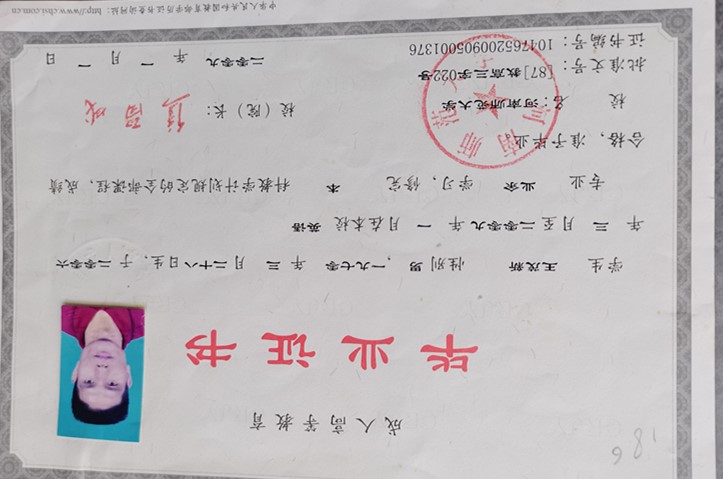 成人高等教育
毕业证书
学生 王茂新 性别 男 ,一九七零 年 三 月二十八日生,于 二零零六
年 三 月至 二零零九 年 一 月在本校 英语
专业 业余 学习,修完 本 科教学计划规定的全部课程,成绩
合格,准予毕业。
校 名:河南师范大学 校(院)长:
批准文号:[87]教高三字022号
证书编号:104765200905001376 二零零九 年 一 月 一 日
河南师范大学
中华人民共和国教育部学历证书查询网址:http://www.chsi.com.cn
186